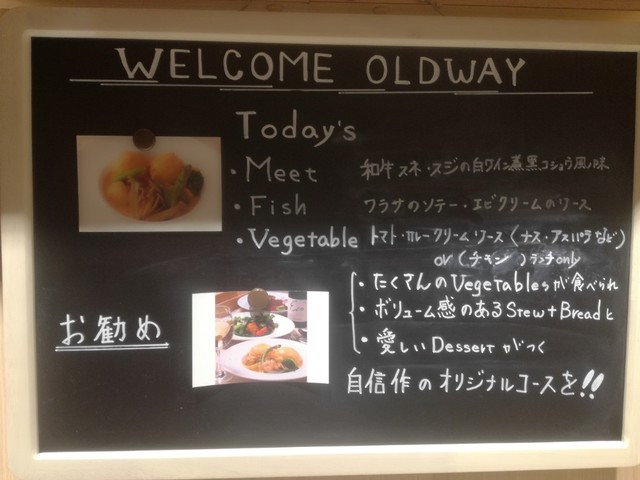 WELCOME OLDWAY
Today's
・Meet 和牛スネ・スジの白ワイン蒸黒コショウ風味
・Fish フラサのソテー・エビクリームのソース
・Vegetable トマト・ブルークリームソース(ナス・アスパラなど)
or (チキン )ランチonly
お勧め
・たくさんのVegetablesが食べられ
・ボリューム感のあるStew+Breadと
・愛しいDessertがつく
自信作のオリジナルコースを!!